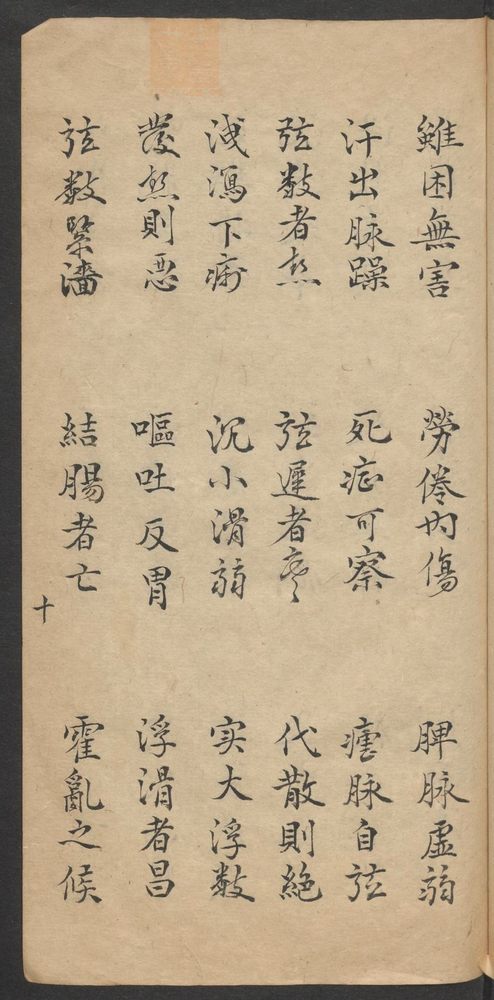 雖困無害 勞倦内傷 脾脉虚弱
汗出脉躁 死症可察 瘧脉自弦
弦数者热 弦遲者寒 代散則絶
泄瀉下痢 沉小滑弱 实大浮数
發热則惡 嘔吐反胃 浮滑者昌
弦数緊濇 結腸者亡 霍亂之候
十